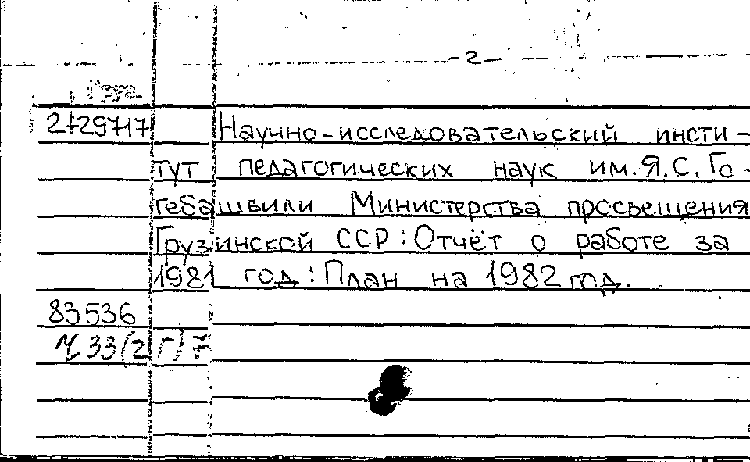 -2-
Груз.
2-29717 Научно-исследовательский инсти-
тут педагогических наук им. Я.С. Го-
гебашвили Министерства просвещения
Грузинской ССР: Отчёт о работе за
1981 год: План на 1982 год.
83536